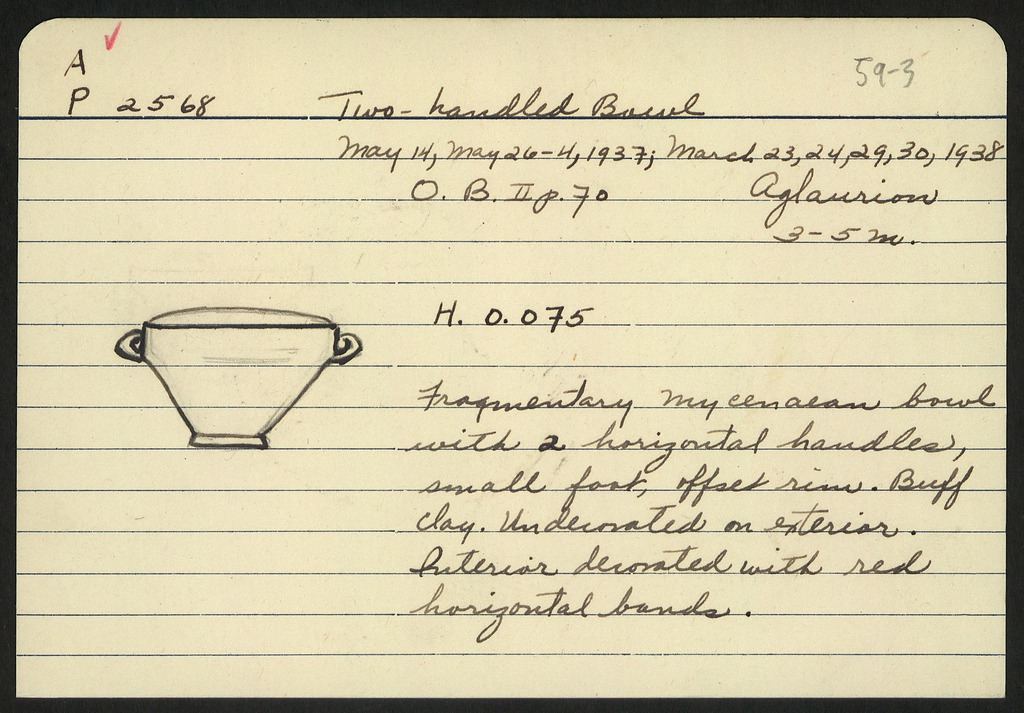 A
59-3
P 2568 Two-handled Bowl
May 14, May 26-4, 1937; March 23, 24, 29, 30, 1938
O. B. II p. 70 Aglaurion
3-5 m.
H. 0.075
Fragmentary Mycenaean bowl
with 2 horizontal handles,
small foot, offset rim. Buff
clay. Undecorated on exterior.
Interior decorated with red
horizontal bands.